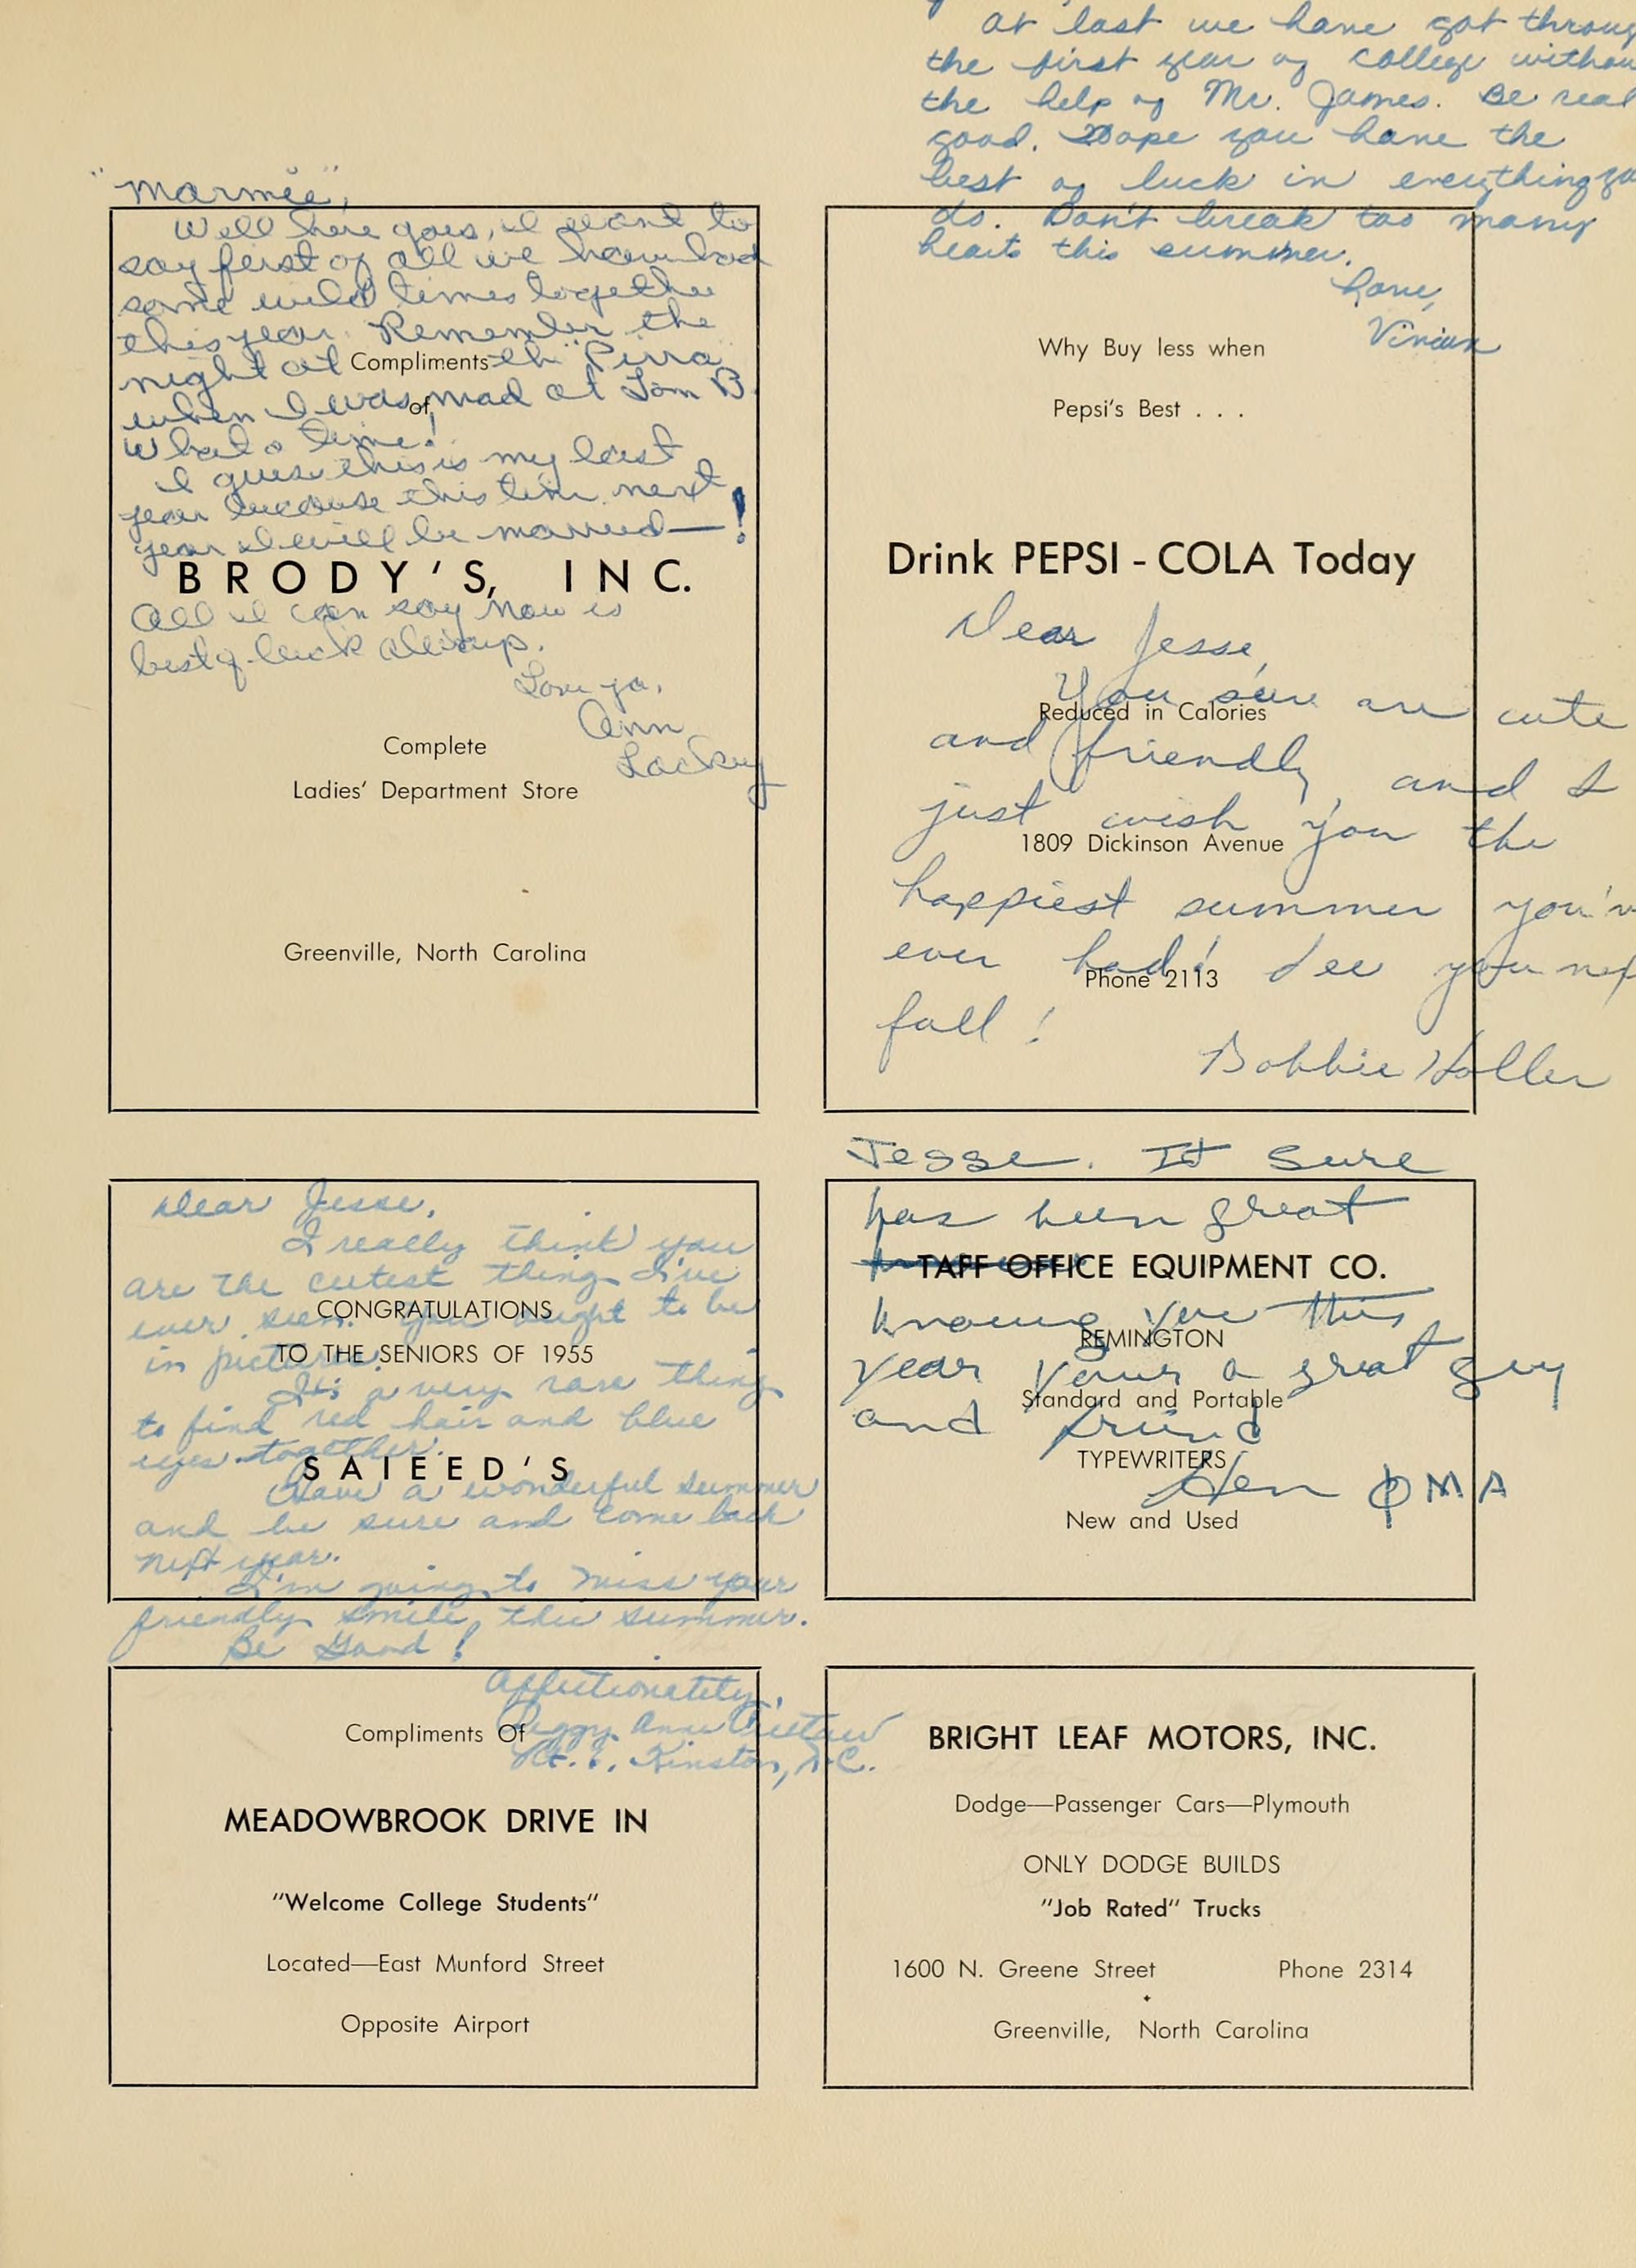 "Marmie",
Well here goes, I want to
say ferst of all we have had
some wild times together
this year. Remember the
night at the Pirra
when I was mad at Tom B.
What a time!
I guess this is my last
year because this time next
year I will be married—!
All I can say now is
best of luck always.
Love ya,
Ann
Lackey
Compliments
of
BRODY'S, INC.
Complete
Ladies' Department Store
Greenville, North Carolina
at last we have got throug
the first year of college withou
the help of Mr. James. Be real
good. Hope you have the
best of luck in everything yo
do. Don't break too many
hearts this summer.
Love,
Vivian
Why Buy less when
Pepsi's Best . . .
Drink PEPSI - COLA Today
Reduced in Calories
1809 Dickinson Avenue
Phone 2113
Dear Jesse,
You sure are cute
and friendly, and I
just wish you the
happiest summer you'v
ever had! See you nex
fall!
Bobbie Holler
Dear Jesse,
I really think you
are the cutest thing I've
ever seen. You ought to be
in pictures.
It's a very rare thing
to find red hair and blue
eyes together.
Have a wonderful summer
and be sure and come back
next year.
I'm going to miss your
friendly smile, this summer.
Be Good!
Affectionately,
Peggy Anne
Kinston, N.C.
CONGRATULATIONS
TO THE SENIORS OF 1955
SAIEED'S
Jesse. It sure
has been great
knowing you this
year your a great guy
and friend
Hen ΦMA
TAFF OFFICE EQUIPMENT CO.
REMINGTON
Standard and Portable
TYPEWRITERS
New and Used
Compliments Of
MEADOWBROOK DRIVE IN
"Welcome College Students"
Located—East Munford Street
Opposite Airport
BRIGHT LEAF MOTORS, INC.
Dodge—Passenger Cars—Plymouth
ONLY DODGE BUILDS
"Job Rated" Trucks
1600 N. Greene Street Phone 2314
Greenville, North Carolina